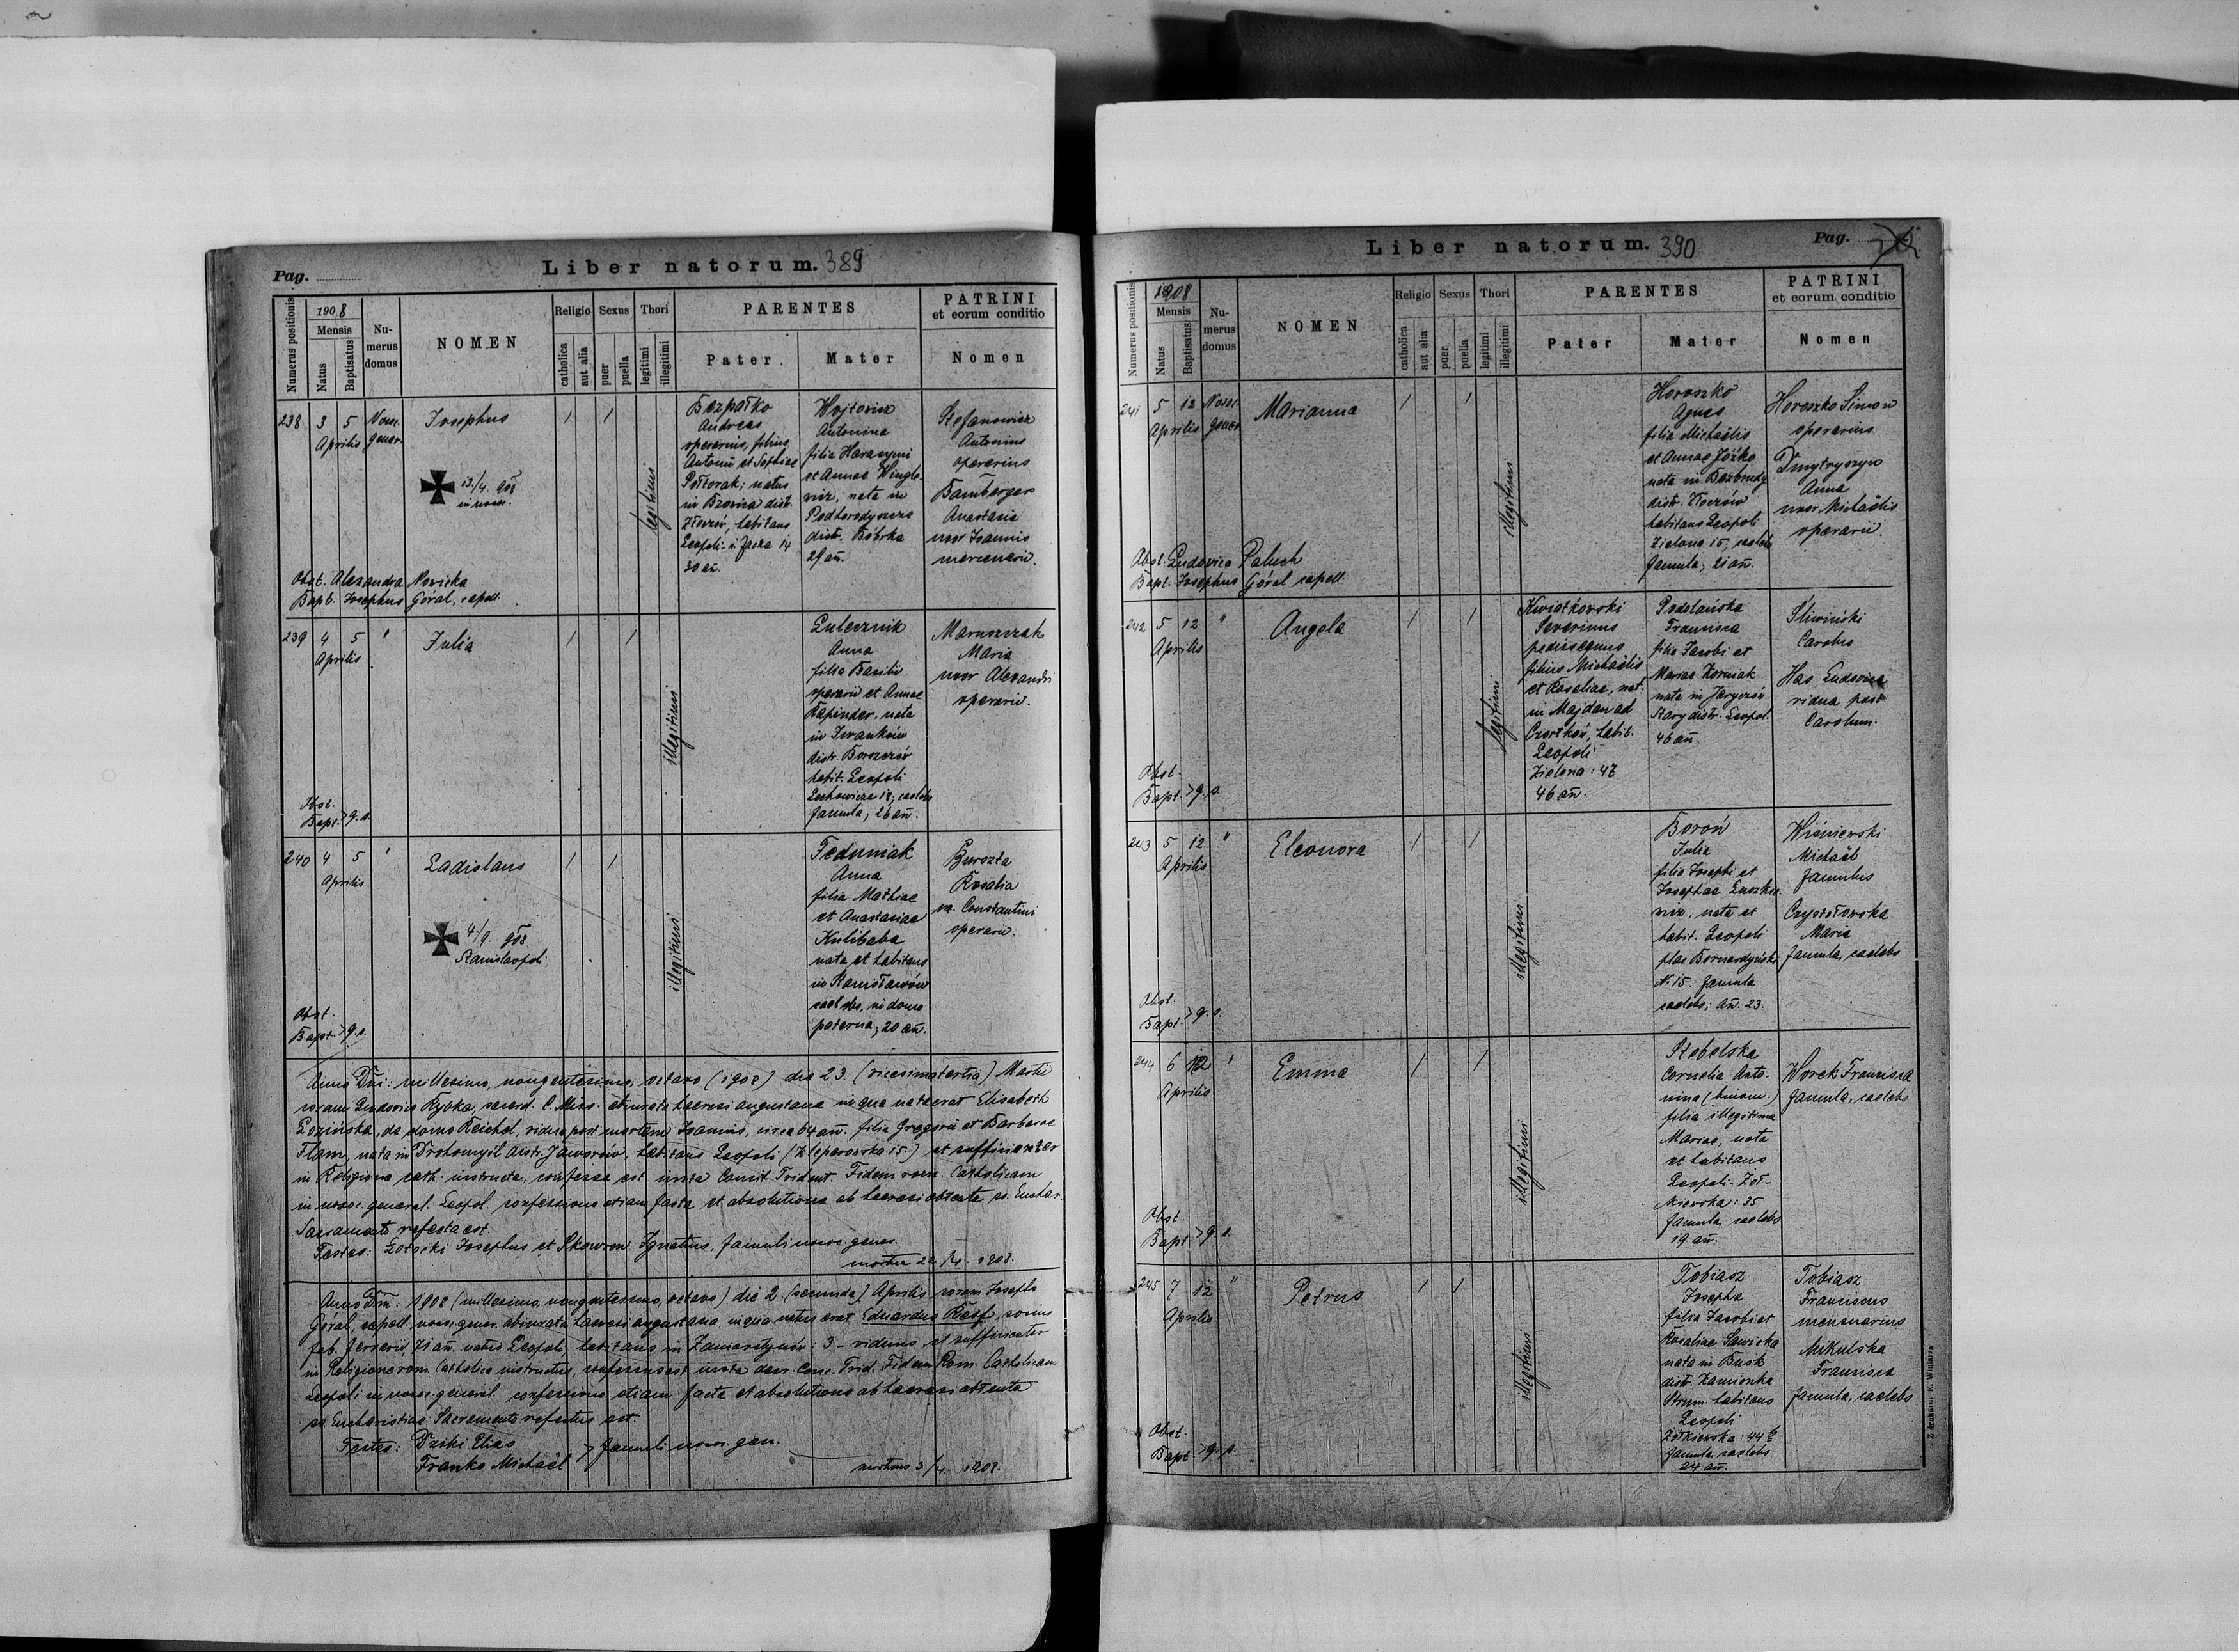 Pag.
Liber natorum. 389
Numerus positionis
1908
Mensis
Natus
Baptisatus
Nu-
merus
domus
NOMEN
Religio
catholica
aut alia
Sexus
puer
puella
Thori
legitimi
illegitimi
PARENTES
Pater
Mater
PATRINI
et eorum conditio
Nomen
238
3 5
Aprilis
Nosoc.
gener.
Josephus
13/4. 908
in nosoc.
legitimi
Bezpałko
Andreas
operarius, filius
Antonii et Sophiae
Półtorak; natus
in Brovica distr.
Złoczów, habitans
Leopoli. ś. Jacka 14
30 an.
Wojtowicz
Antonina
filia Harasymi
et Annae Winglo-
wicz, nata in
Podhorodyszcze
distr. Bóbrka
29 an.
Stefanowicz
Antonius
operarius
Bamberger
Anastasia
uxor Joannis
mercenarii.
Obst. Alexandra Nowicka
Bapt. Josephus Góral, capell.
239
4 5
Aprilis
"
Julia
illegitimi
Anna
filia Basilii
operarii et Annae
nata
in Iwanków
distr. Borszczów
habit. Leopoli
Lochowicza 18, caelebs
famula, 26 an.
Maruszczak
Maria
uxor Alexandri
operarii.
Obst.
Bapt. > q. s.
240
4 5
Aprilis
"
Ladislaus
4/9. 908
Stanislaopoli
illegitimi
Feduniak
Anna
filia Mathiae
et Anastasiae
Kulibaba
nata et habitans
in Stanisławów
caelebs, in domo
paterna, 20 an.
Rosalia
ux. Constantini
operarii.
Obst.
Bapt. > q. s.
Anno Dni: millesimo, nongentesimo, octavo (1908) die 23. (vicesima tertia) Martii
coram Ludovico Rybka, sacerd. C. Miss. abiurata haeresi augustana in qua nata erat Elisabeth
Łozińska, de domo Reichel, vidua post mortem Joannis, circa 64 an. filia Gregorii et Barbarae
Flam, nata in Drohomyśl distr. Jaworów, habitans Leopoli (Kleparowska 15.) et sufficienter
in Religione cath. instructa, confessa est iuxta Concil. Trident. Fidem rom. Catholicam
in nosoc. general. Leopol. confessione etiam facta et absolutione ab haeresi obtenta ss. Euchar.
Sacramento refecta est.
Testes: Zołocki Josephus et Skowron Ignatius, famuli nosoc. gener.
mortua 22/4. 1908.
Anno Dni: 1908 (millesimo, nongentesimo, octavo) die 2. (secunda) Aprilis coram Josepho
Góral, capell. nosoc. gener. abiurata haeresi augustana in qua natus erat Eduardus
fab. ferrarii, 71 an. natus Leopoli, habitans in Zamarstynów: 3 - viduus, et sufficienter
in Religione rom. Catholica instructus, confessus est iuxta decr. Conc. Trid. Fidem Rom. Catholicam
Leopoli in nosoc. general. confessione etiam facta et absolutione ab haeresi obtenta
ss. Eucharistiae Sacramento refectus est.
Testes: Dziki Elias
Franko Michaël > famuli nosoc. gen.
mortuus 3/4 1908.
Liber natorum. 390
Pag.
Numerus positionis
1908
Mensis
Natus
Baptisatus
Nu-
merus
domus
NOMEN
Religio
catholica
aut alia
Sexus
puer
puella
Thori
legitimi
illegitimi
PARENTES
Pater
Mater
PATRINI
et eorum conditio
Nomen
241
5 12
Aprilis
Nosoc.
gener.
Marianna
illegitimi
Horoszko
Agnes
filia Michaëlis
et Annae Jóźko
nata in Bezbrudy
distr. Złoczów
habitans Leopoli
Zielona 15, caelebs
famula, 21 an.
Horoszko Simon
operarius
Dmytryszyn
Anna
uxor Michaëlis
operarii.
Obst. Ludovica Paluch
Bapt. Josephus Góral capell.
242
5 12
Aprilis
"
Angela
legitimi
Kwiatkowski
Severinus
pedissequus
filius Michaëlis
et Rosaliae, nat.
in Majdan ad
Czortków, habit.
Leopoli
Zielona: 47
46 an.
Podolańska
Francisca
filia Jacobi et
Mariae Korniak
nata in Jaryczów
Stary distr. Leopol.
46 an.
Śliwiński
Carolus
Has Ludovica
vidua post
Carolum.
Obst.
Bapt. > q. s.
243
5 12
Aprilis
"
Eleonora
illegitimi
Boroń
Julia
filia Josephi et
Josephae Łuszkie-
wicz, nata et
habit. Leopoli
plac Bernardyński
N. 15. famula
caelebs; an. 23.
Wiśniewski
Michaël
famulus
Czystołowska
Maria
famula, caelebs
Obst.
Bapt. > q. s.
244
6 12
Aprilis
"
Emma
illegitimi
Stebelska
Cornelia Anto-
nina (binom.)
filia illegitima
Mariae, nata
et habitans
Leopoli - Żół-
kiewska: 35
famula caelebs
19. an.
Worek Francisca
famula, caelebs
Obst.
Bapt. > q. s.
245
7 12
Aprilis
"
Petrus
illegitimi
Tobiasz
Josepha
filia Jacobi et
Rosaliae Sawicka
nata in Busk
distr. Kamionka
Strum. habitans
Leopoli
Żółkiewska: 44
famula, caelebs
24 an.
Tobiasz
Franciscus
mercenarius
Mikulska
Francisca
famula, caelebs
Obst.
Bapt. > q. s.
Z drukarni E. Winiarza